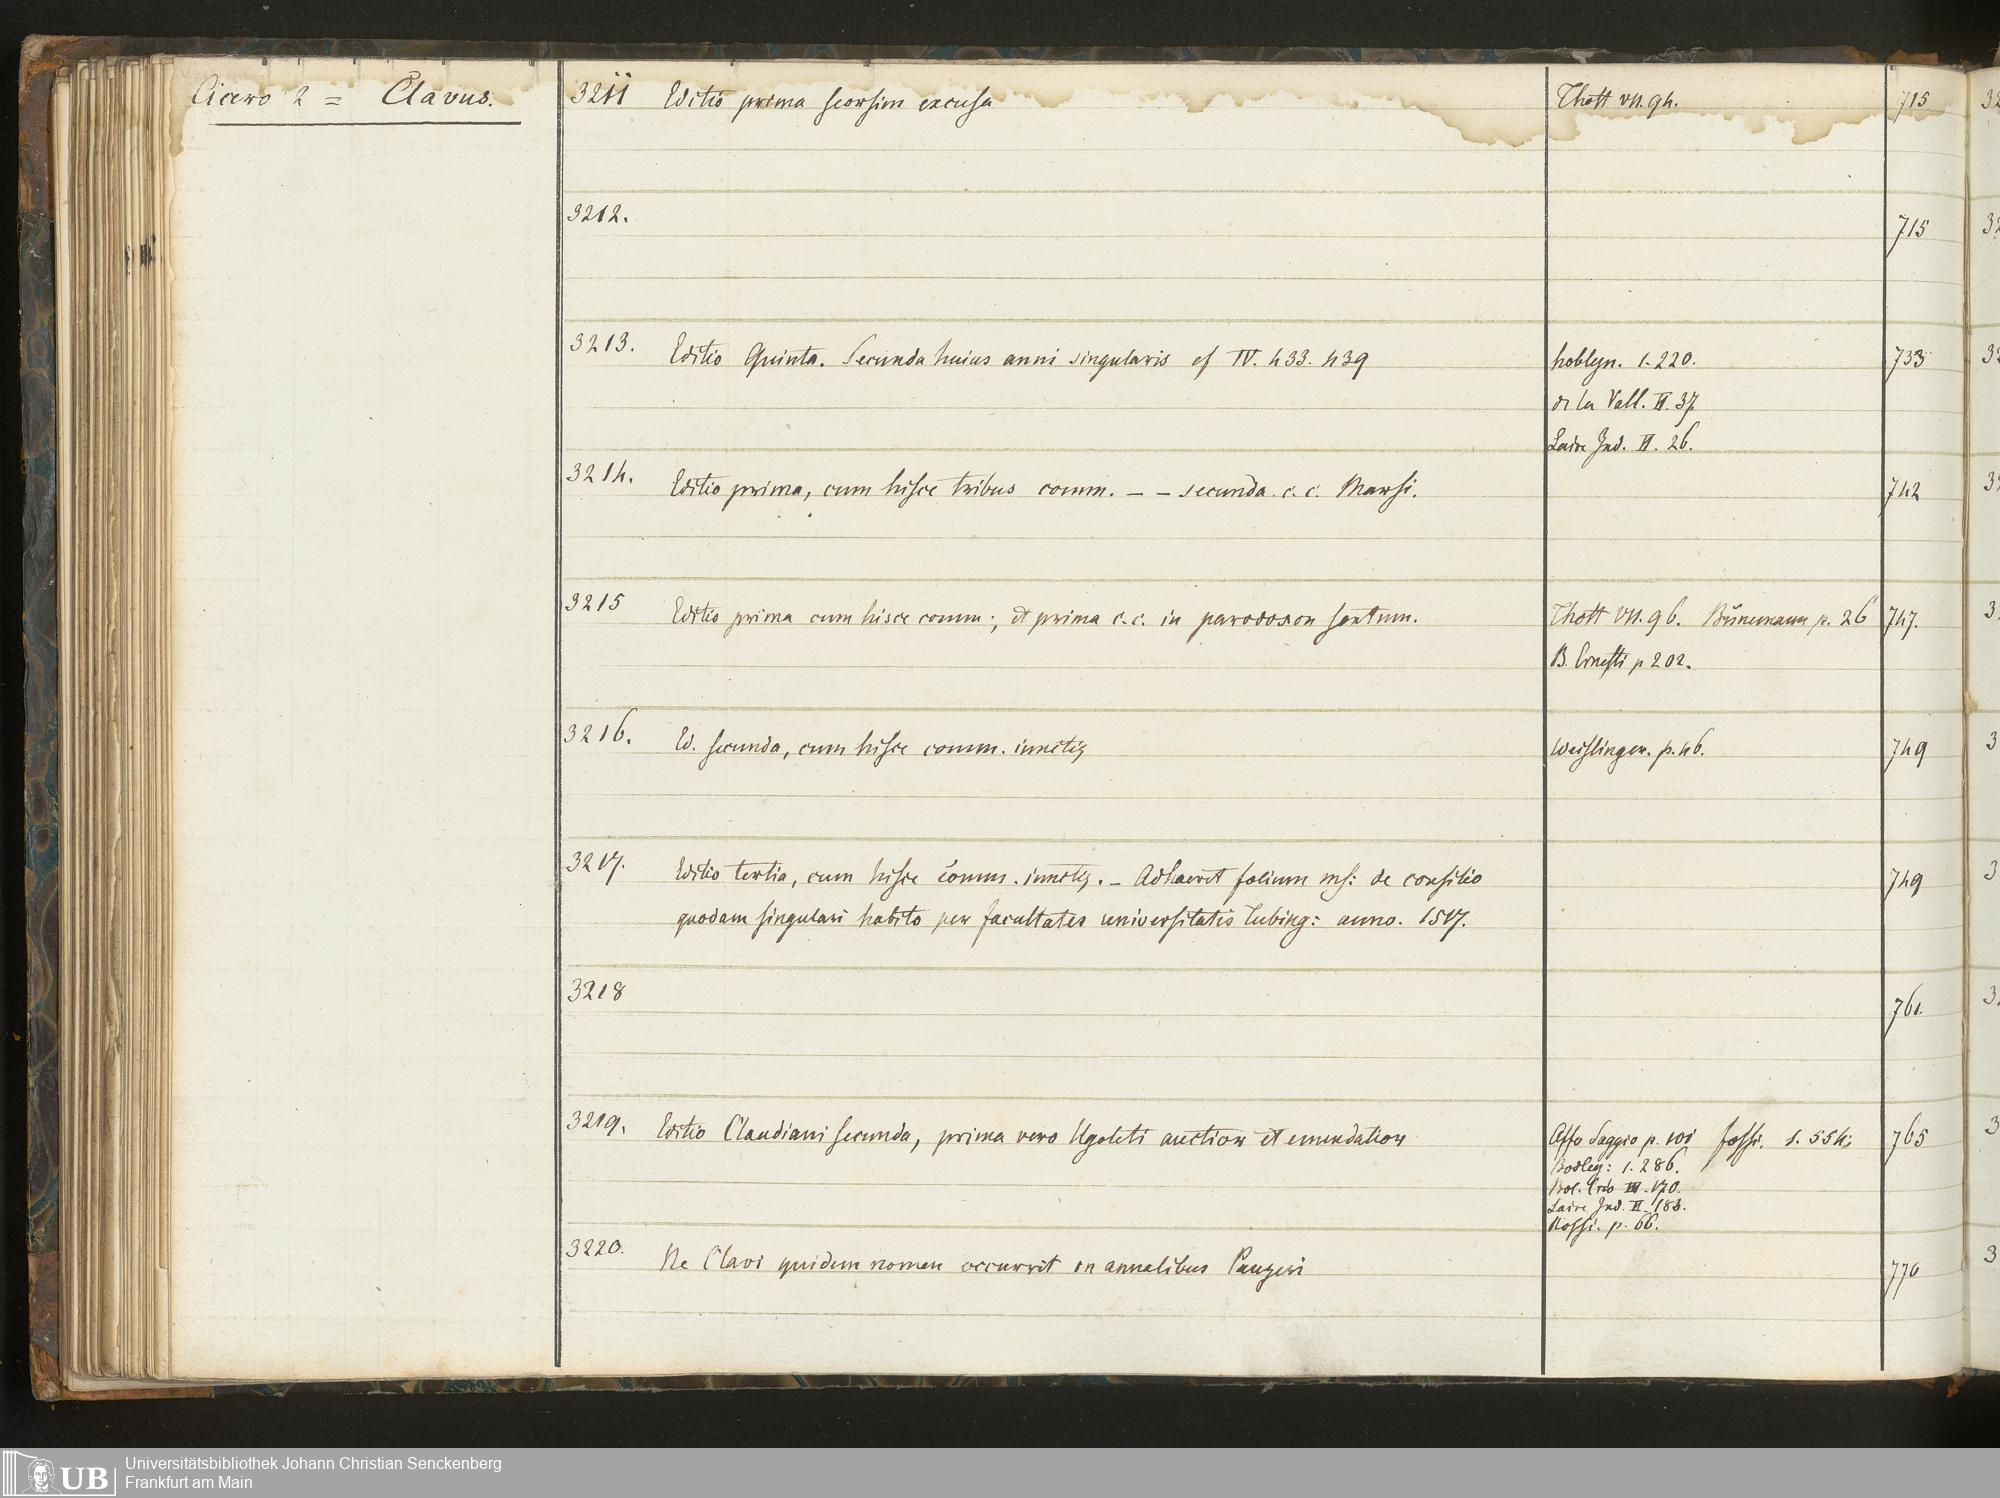 Cicero 2 = Clavus.
3211 Editio prima seorsim excusa Thott VII. 94. 715
3212. 715
3213. Editio Quinta. Secunda huius anni singularis cf IV. 433. 439 hoblyn. 1. 220. 733
de la Vall. II. 37
Laire Ind. II. 26.
3214. Editio prima, cum hisce tribus comm. – – secunda. c. c. Marsi. 742
3215 Editio prima cum hisce comm:, et prima c. c. in paradoxon sextum. Thott VII. 96. Bünemann p. 26 747.
B. Ernesti p 202.
3216. Ed. secunda, cum hisce comm. Weislinger. p. 46. 749
3217. Editio tertia, cum hisce comm. – Adhaeret folium ms: de consilio 749
quodam singulari habito per facultates universitatis Tubing: anno. 1517.
3218 761.
3219. Editio Claudiani secunda, prima vero Ugoleti auctior et emendatior Affo Saggio p. 101 fossi. 1. 554: 765
Bodley: 1. 286.
Bol. Crev III. 170.
Laire Ind. II. 183.
Rossi. p. 66.
3220. Ne Clavi quidem nomen occurrit in annalibus Panzeri 770
UB Universitätsbibliothek Johann Christian Senckenberg
Frankfurt am Main